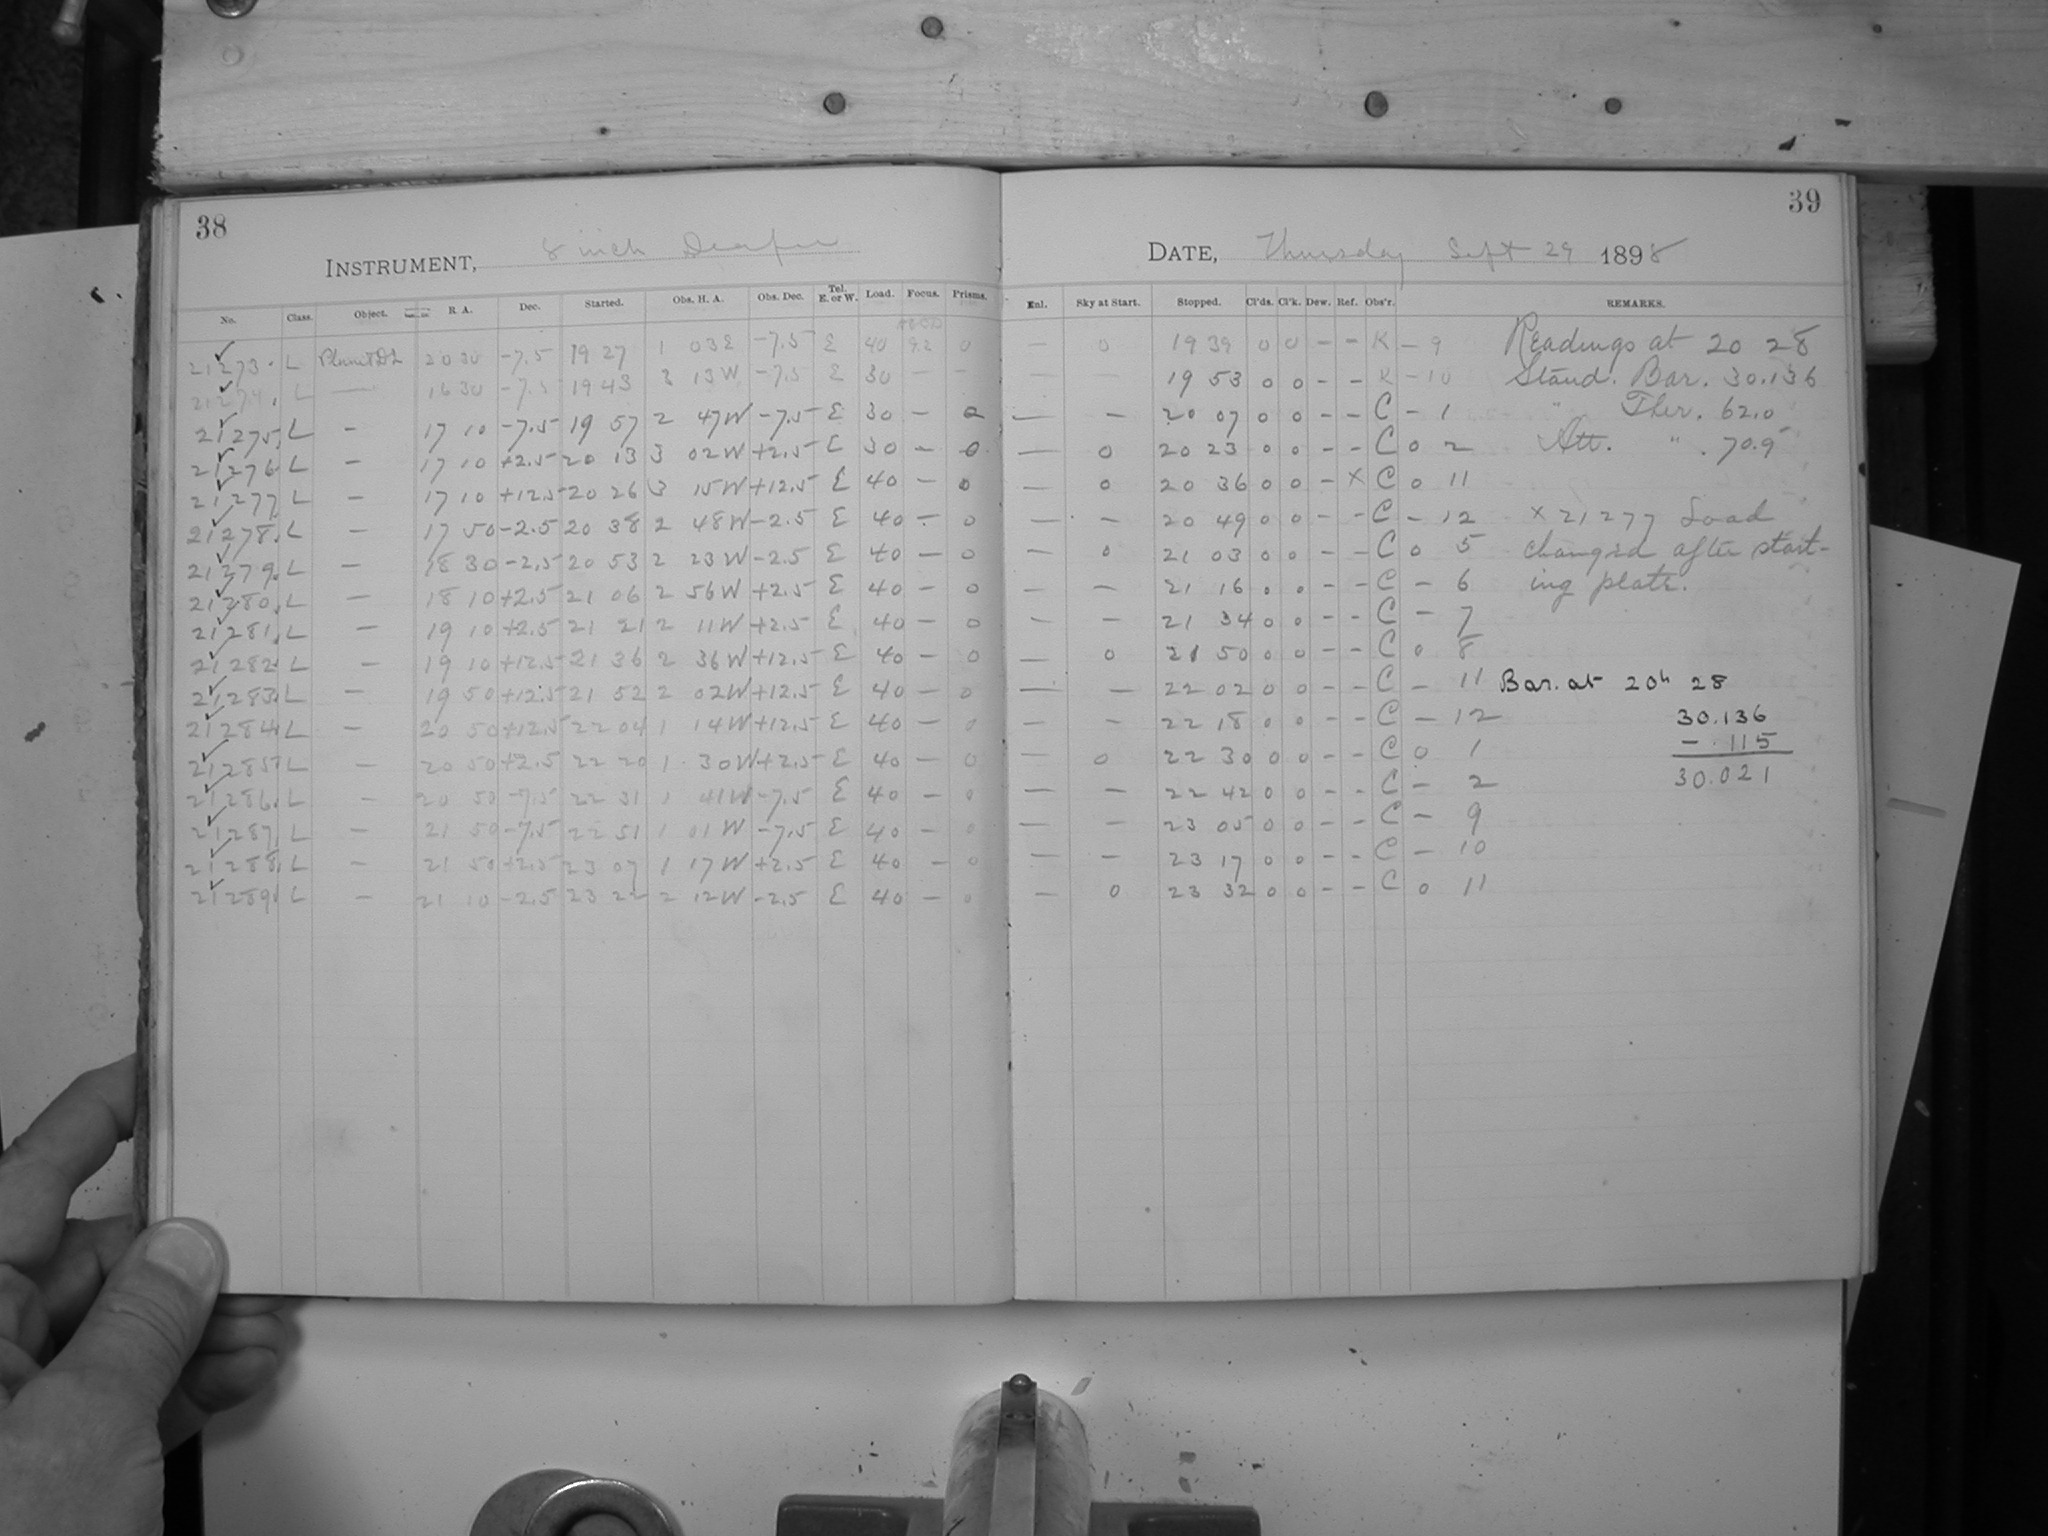 38
INSTRUMENT, 8 inch Draper
No. Class. Object. R. A. Dec. Started. Obs. H. A. Obs. Dec. Tel. E. or W. Load. Focus. Prisms.
21273. L Planet DL 20 30 -7.5 19 27 1 03 E -7.5 E 40 9.2 0
21274. L — 16 30 -7.5 19 43 3 13 W -7.5 E 30 — —
21275. L — 17 10 -7.5 19 57 2 47 W -7.5 E 30 — 0
21276 L — 17 10 +2.5 20 13 3 02 W +2.5 E 30 — 0
21277. L — 17 10 +12.5 20 26 3 15 W +12.5 E 40 — 0
21278. L — 17 50 -2.5 20 38 2 48 W -2.5 E 40 — 0
21279. L — 18 30 -2.5 20 53 2 23 W -2.5 E 40 — 0
21280. L — 18 10 +2.5 21 06 2 56 W +2.5 E 40 — 0
21281. L — 19 10 +2.5 21 21 2 11 W +2.5 E 40 — 0
21282 L — 19 10 +12.5 21 36 2 36 W +12.5 E 40 — 0
21283. L — 19 50 +12.5 21 52 2 02 W +12.5 E 40 — 0
21284. L — 20 50 +12.5 22 04 1 14 W +12.5 E 40 — 0
21285 L — 20 50 +2.5 22 20 1 30 W +2.5 E 40 — 0
21286. L — 20 50 -7.5 22 31 1 41 W -7.5 E 40 — 0
21287. L — 21 50 -7.5 22 51 1 01 W -7.5 E 40 — 0
21288. L — 21 50 +2.5 23 07 1 17 W +2.5 E 40 — 0
21289. L — 21 10 -2.5 23 22 2 12 W -2.5 E 40 — 0
39
DATE, Thursday Sept 29 1898
Enl. Sky at Start. Stopped. Cl'ds. Cl'k. Dew. Ref. Obs'r. REMARKS.
— 0 19 39 0 0 - - K - 9 Readings at 20 28
— — 19 53 0 0 - - K - 10 Stand. Bar. 30.136
— — 20 07 0 0 - - C - 1 " Ther. 62.0
— 0 20 23 0 0 - - C 0 2 Att. " . 70.5
— 0 20 36 0 0 - X C 0 11
— — 20 49 0 0 - - C - 12 X 21277 Load
— 0 21 03 0 0 - - C 0 5 changed after start-
— — 21 16 0 0 - - C - 6 ing plate.
— — 21 34 0 0 - - C - 7
— 0 21 50 0 0 - - C 0 8
— — 22 02 0 0 - - C - 11 Bar. at 20h 28
— — 22 18 0 0 - - C - 12 30.136
— 0 22 30 0 0 - - C 0 1 - .115
— — 22 42 0 0 - - C - 2 30.021
— — 23 05 0 0 - - C - 9
— — 23 17 0 0 - - C - 10
— 0 23 32 0 0 - - C 0 11